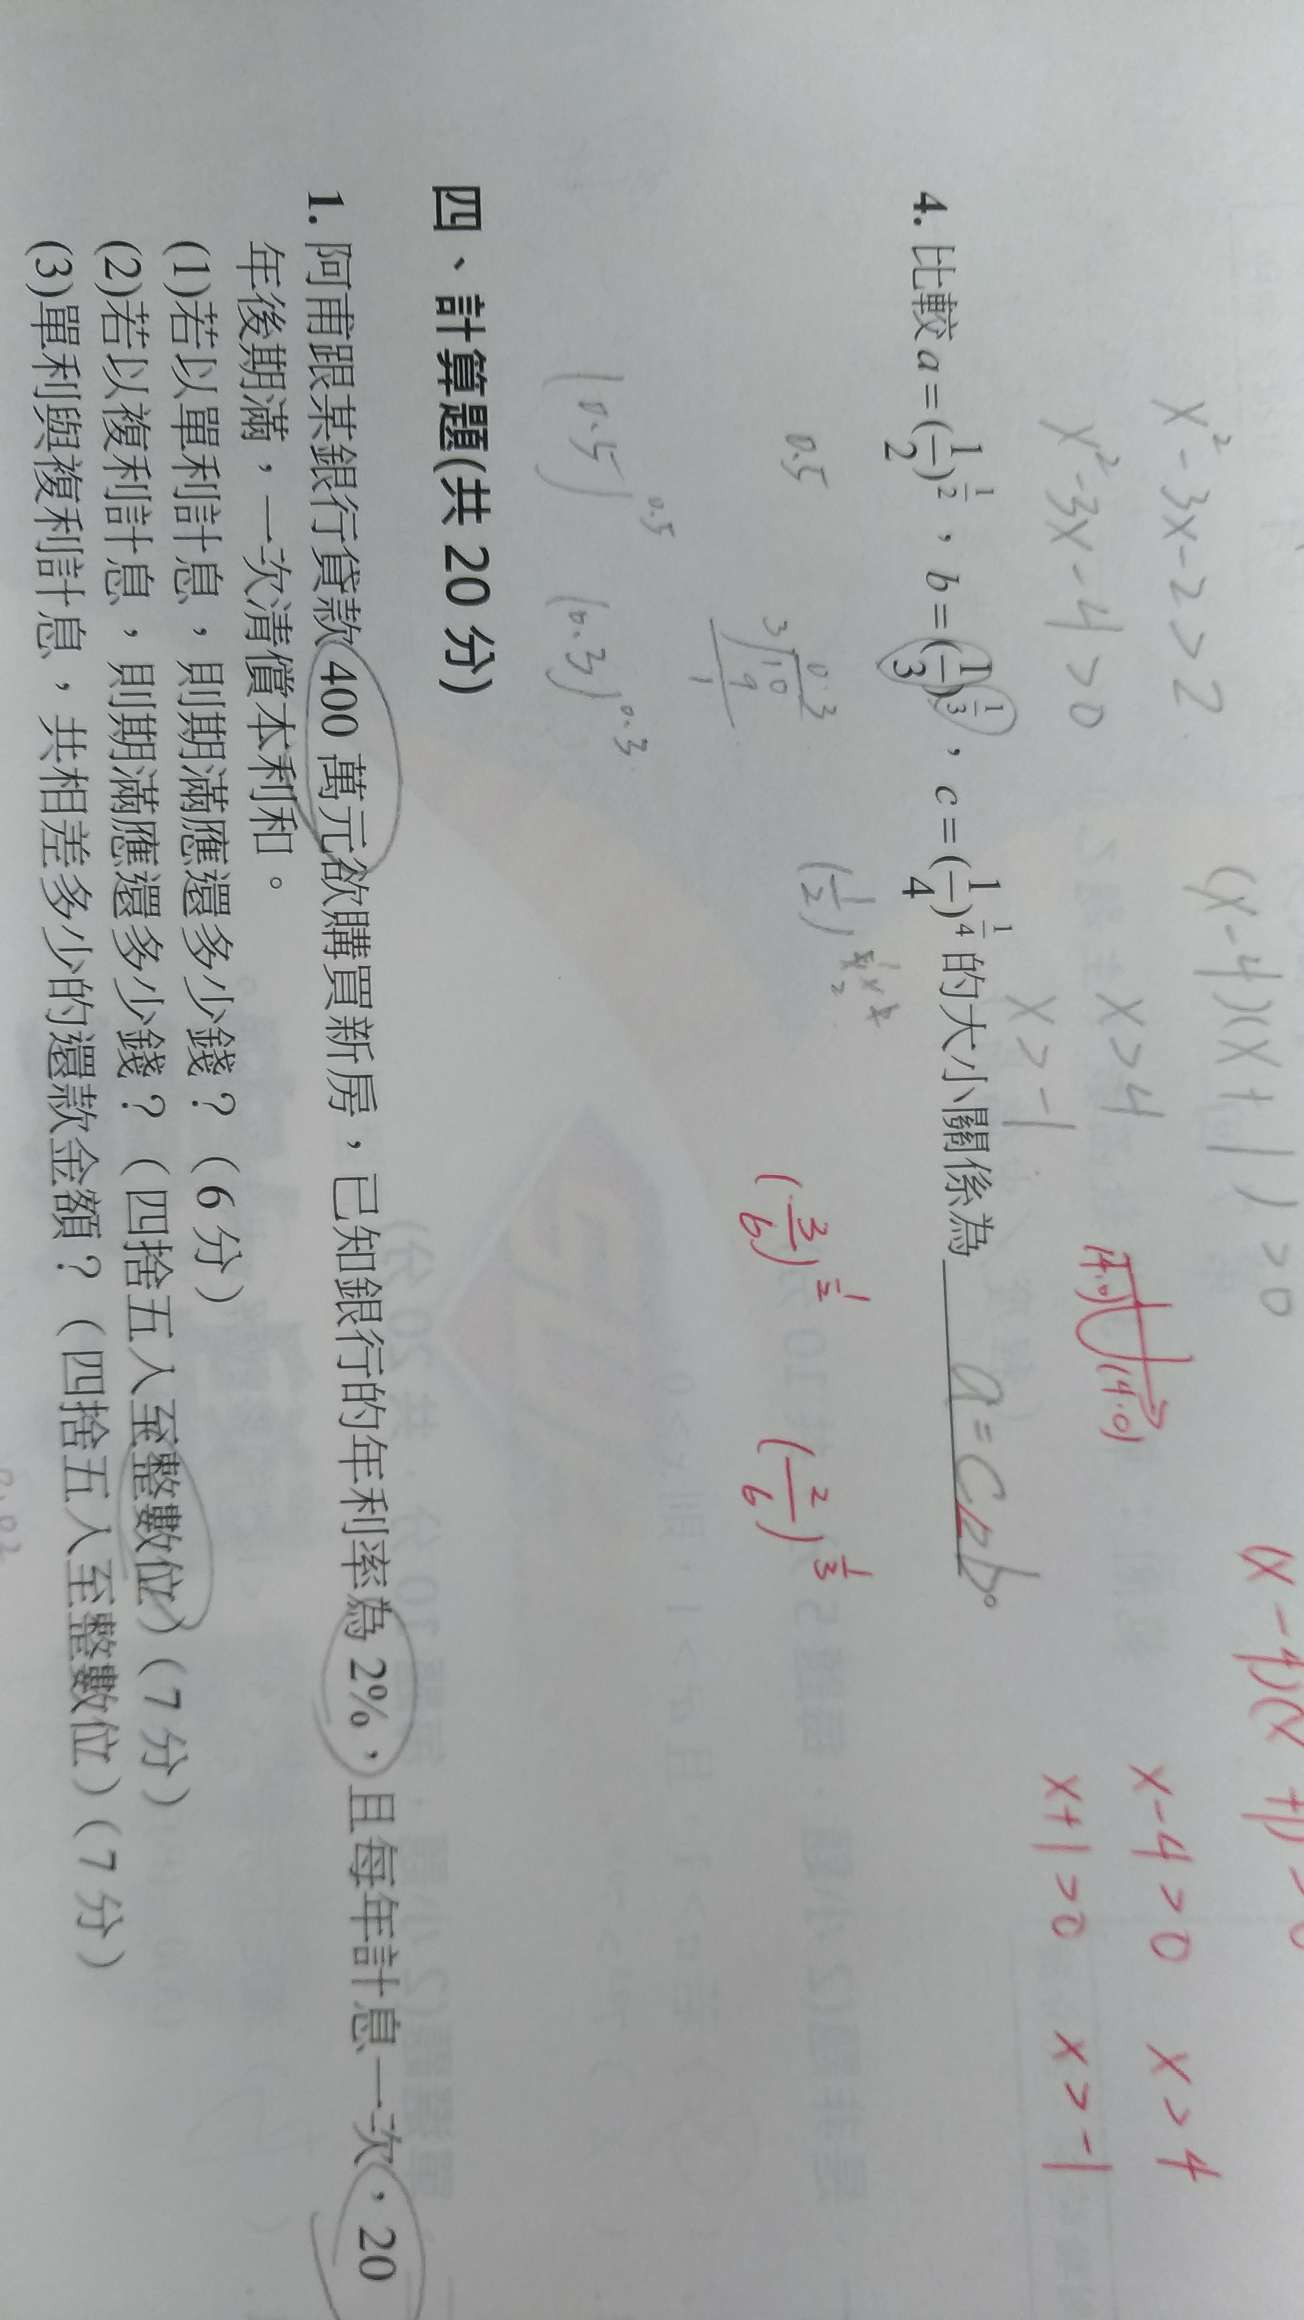 x² - 3x - 2 > 2
x² - 3x - 4 > 0
(x - 4)(x + 1) > 0
x > 4
x > -1
(4.0)
(4.0)
x - 4 > 0 x > 4
x + 1 > 0 x > -1
4. 比較 a = (1/2)^(1/2)，b = (1/3)^(1/3)，c = (1/4)^(1/4) 的大小關係為 a = c > b。
0.5
0.3
3 10
9
1
(0.5)^0.5 (0.3)^0.3
(3/6)^(1/2) (2/6)^(1/3)
四、計算題(共 20 分)
1. 阿甫跟某銀行貸款 400 萬元欲購買新房，已知銀行的年利率為 2%，且每年計息一次，20
年後期滿，一次清償本利和。
(1)若以單利計息，則期滿應還多少錢？（6 分）
(2)若以複利計息，則期滿應還多少錢？（四捨五入至整數位）（7 分）
(3)單利與複利計息，共相差多少的還款金額？（四捨五入至整數位）（7 分）